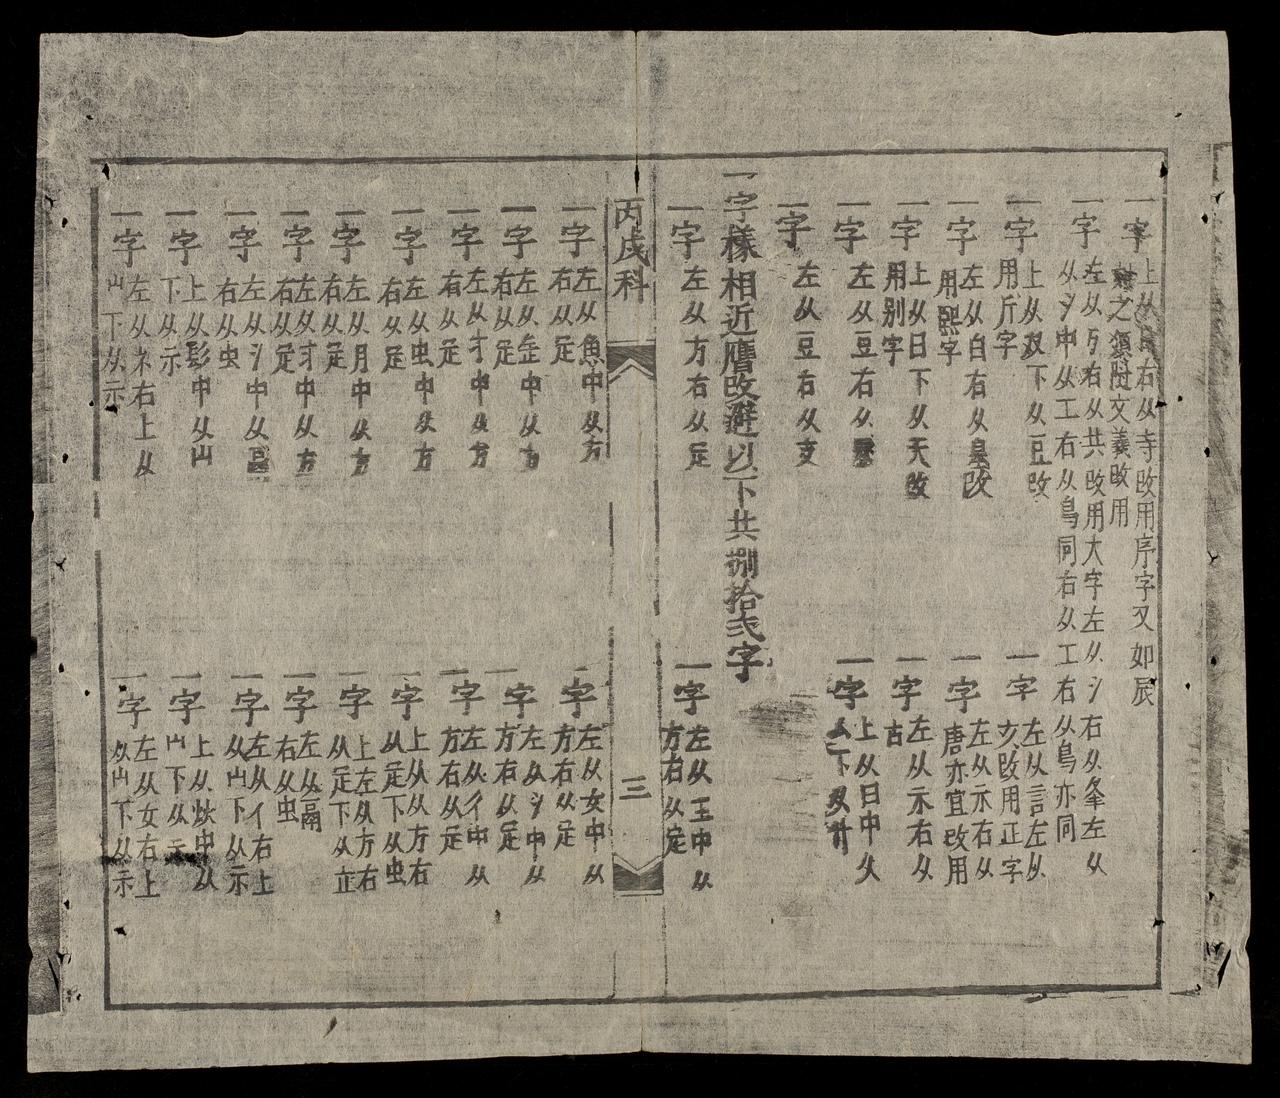 一字
右从寺改用序字又如辰
之類隨文義改用
一字
左从歹右从共改用大字左从氵右从夆左从
从氵中从工右从鳥同右从工右从鳥亦同
一字
上从敄下从豆改
用斤字
一字
左从言左从
亥改用正字
一字
左从白右从皇改
用熙字
一字
左从示右从
唐亦宜改用
一字
上从日下从天改
用別字
一字
左从示右从
古
一字
左从豆右从
一字
上从日中从
亼下从廾
一字
左从豆右从支
一字樣相近譍改避以下共捌拾弍字
一字
左从方右从定
一字
左从王中从
方右从定
丙戌科
三
一字
左从魚中从方
右从疋
一字
左从女中从
方右从疋
一字
左从歪中从方
右从疋
一字
左从氵中从
方右从疋
一字
左从才中从方
右从疋
一字
左从彳中从
方右从疋
一字
左从虫中从方
右从疋
一字
上从从方右
从疋下从虫
一字
左从月中从方
右从疋
一字
上左从方右
从疋下从立
一字
左从牙中从方
右从疋
一字
左从鬲
右从虫
一字
左从氵中从畐
右从虫
一字
左从亻右上
从山下从示
一字
上从髟中从山
下从示
一字
上从炏中从
冖下从示
一字
左从礻右上从
山下从示
一字
左从女右上
从山下从示